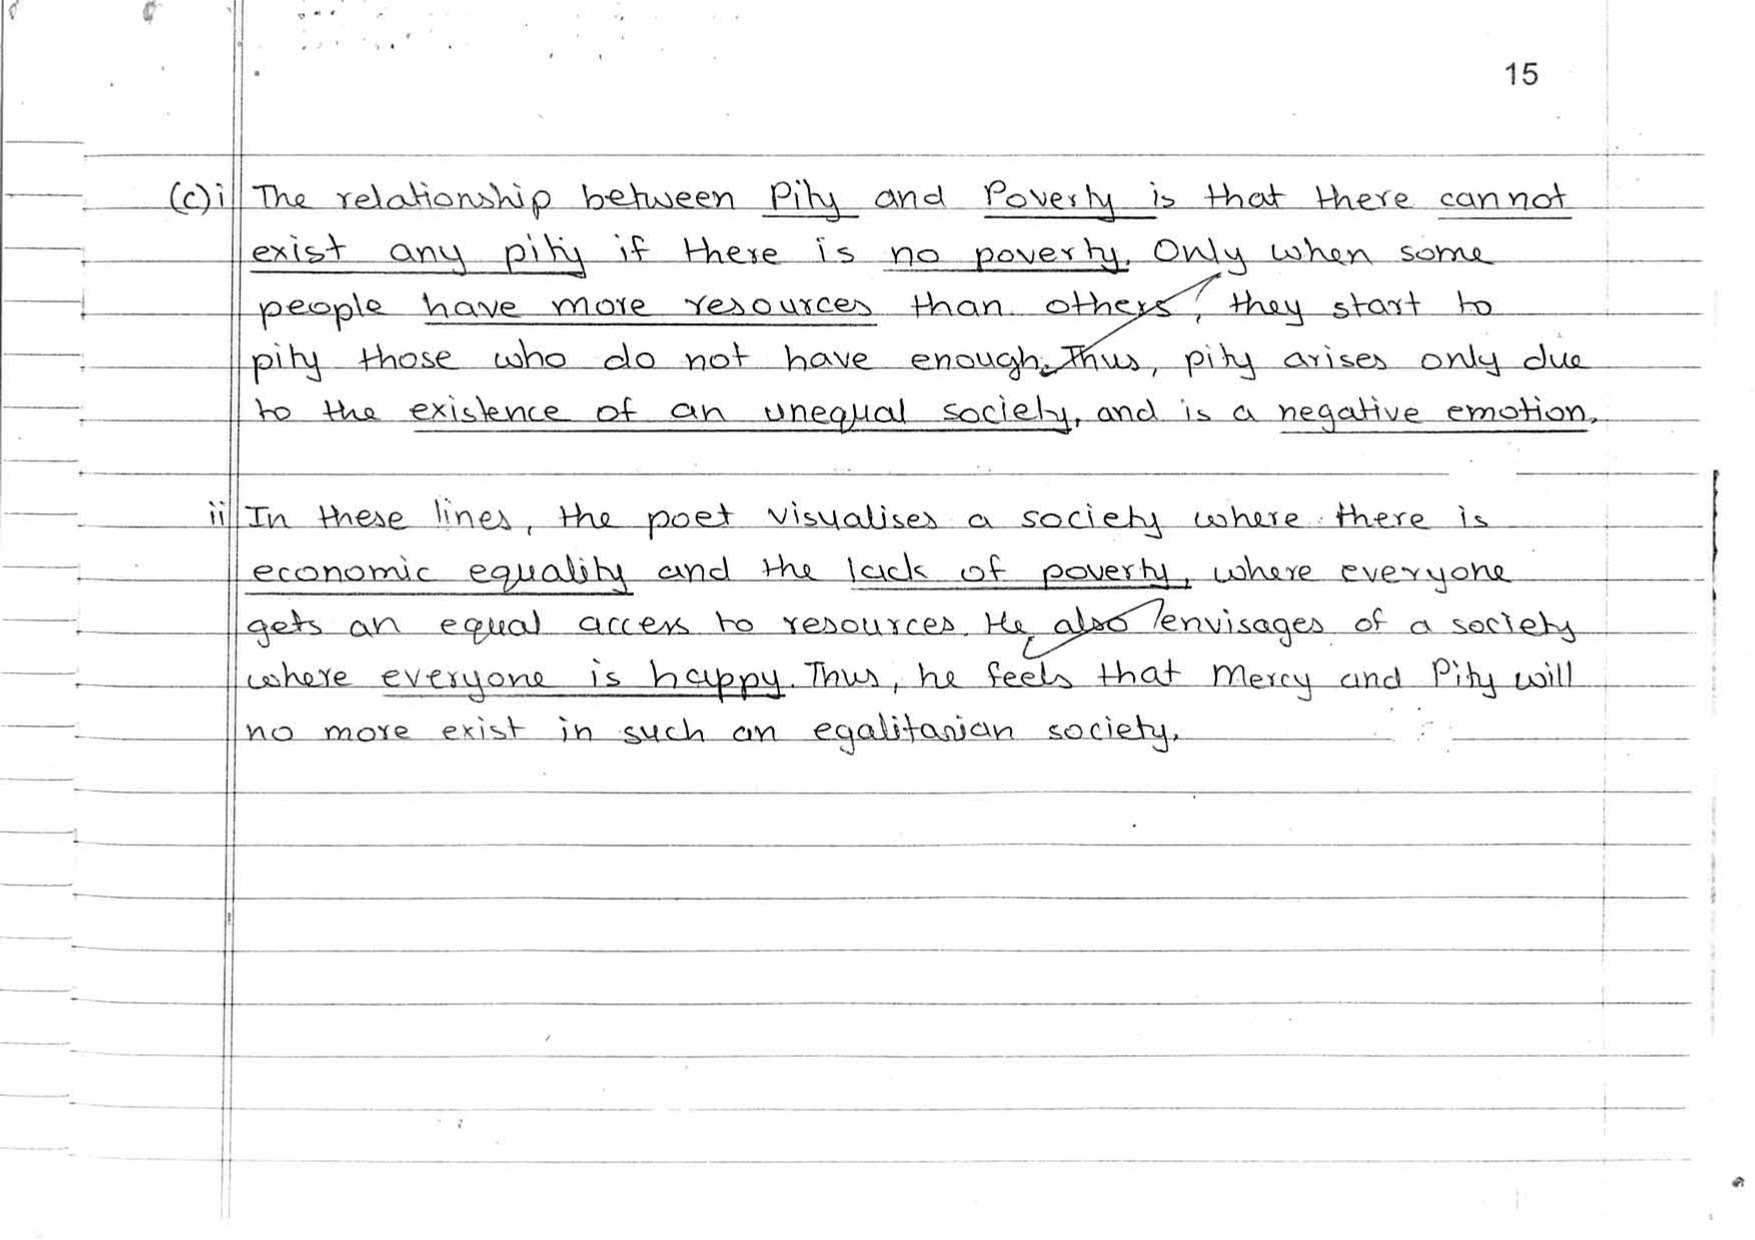 15
(c)i The relationship between Pity and Poverty is that there cannot
exist any pity if there is no poverty. Only when some
people have more resources than others, they start to
pity those who do not have enough. Thus, pity arises only due
to the existence of an unequal society, and is a negative emotion.
ii In these lines, the poet visualises a society where there is
economic equality and the lack of poverty, where everyone
gets an equal access to resources. He also envisages of a society
where everyone is happy. Thus, he feels that Mercy and Pity will
no more exist in such an egalitarian society.